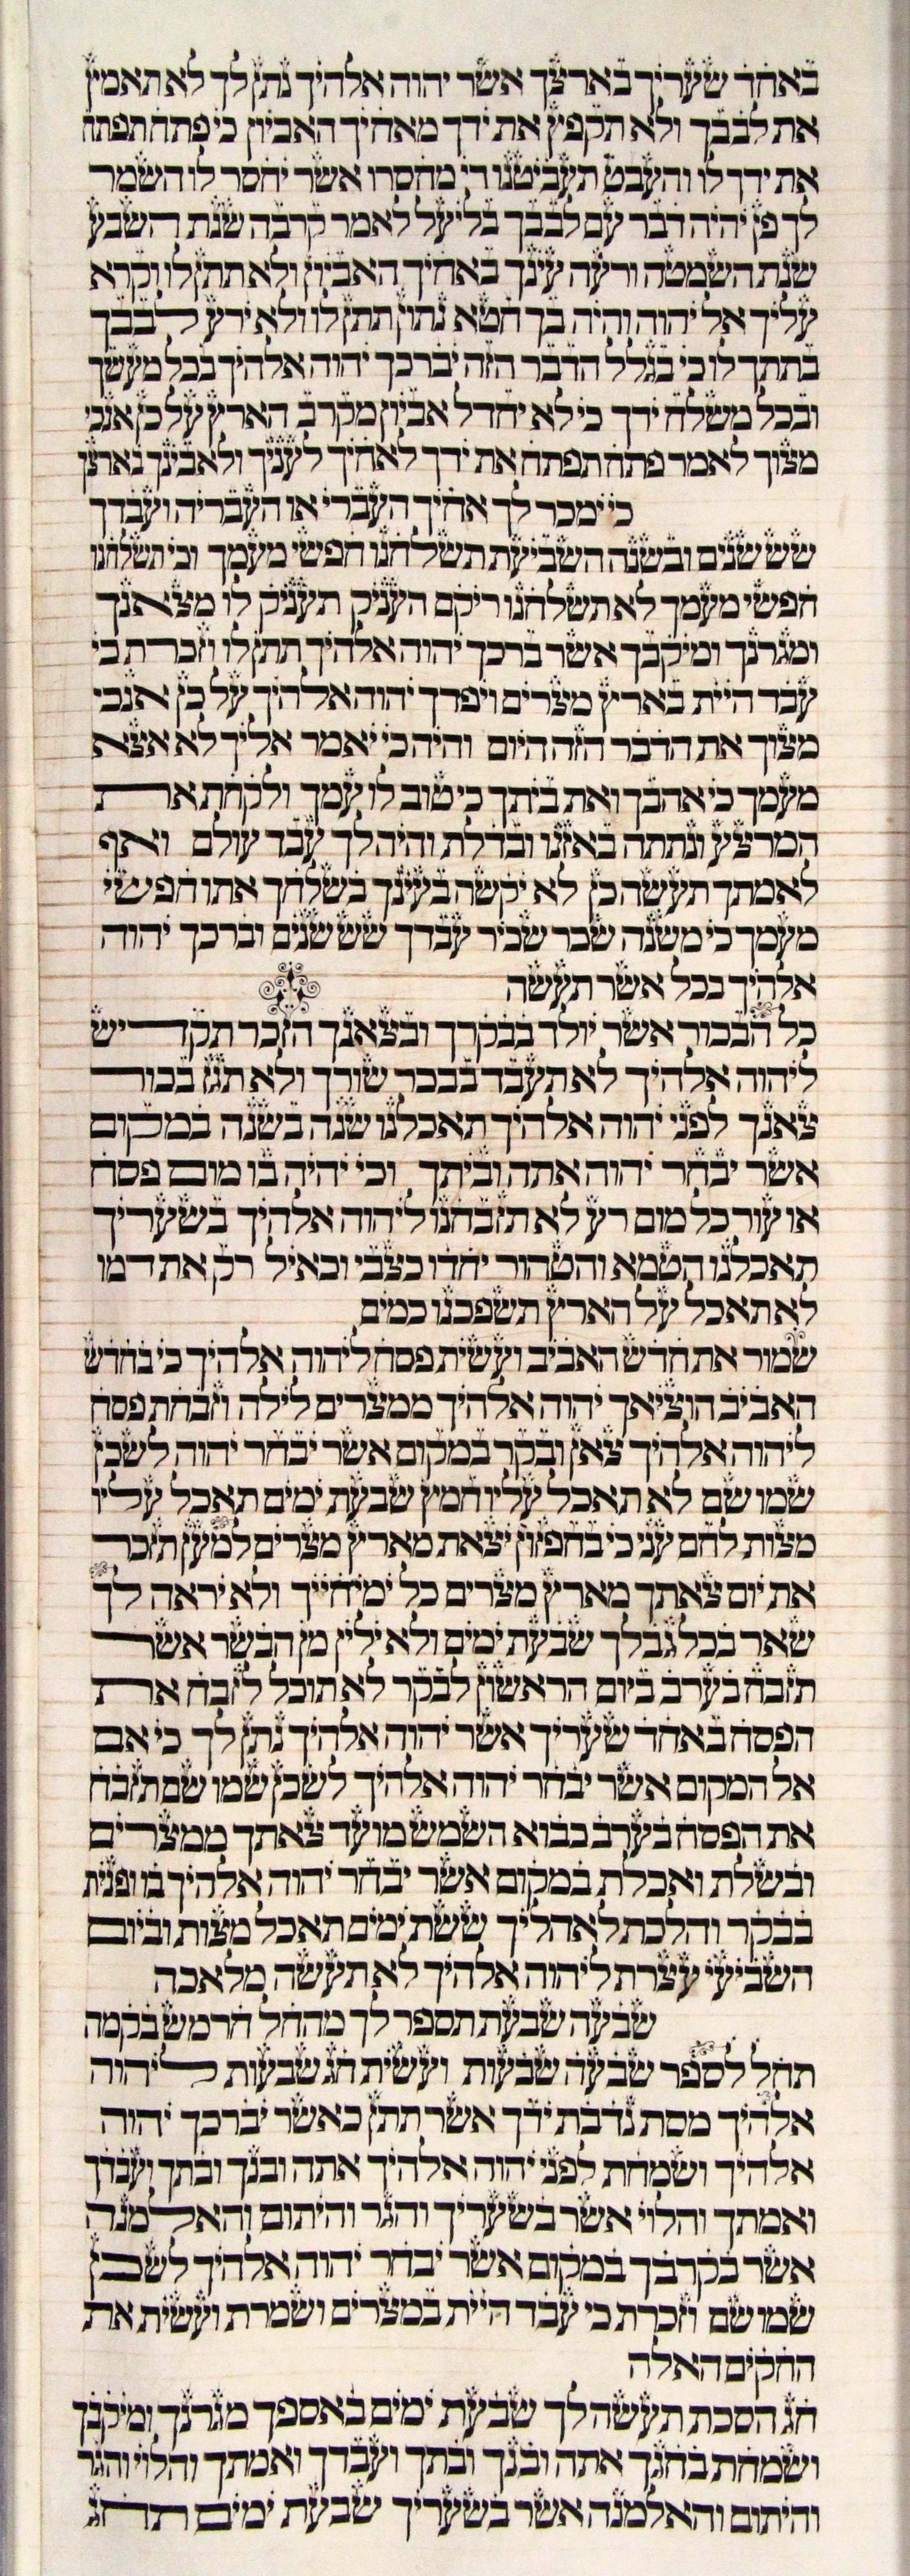 באחד שעריך בארצך אשר יהוה אלהיך נתן לך לא תאמץ
את לבבך ולא תקפץ את ידך מאחיך האביון כי פתח תפתח
את ידך לו והעבט תעביטנו די מחסרו אשר יחסר לו השמר
לך פן יהיה דבר עם לבבך בליעל לאמר קרבה שנת השבע
שנת השמטה ורעה עינך באחיך האביון ולא תתן לו וקרא
עליך אל יהוה והיה בך חטא נתון תתן לו ולא ירע לבבך
בתתך לו כי בגלל הדבר הזה יברכך יהוה אלהיך בכל מעשך
ובכל משלח ידך כי לא יחדל אביון מקרב הארץ על כן אנכי
מצוך לאמר פתח תפתח את ידך לאחיך לעניך ולאבינך בארצך
כי ימכר לך אחיך העברי או העבריה ועבדך
שש שנים ובשנה השביעת תשלחנו חפשי מעמך וכי תשלחנו
חפשי מעמך לא תשלחנו ריקם העניק תעניק לו מצאנך
ומגרנך ומיקבך אשר ברכך יהוה אלהיך תתן לו וזכרת כי
עבד היית בארץ מצרים ויפדך יהוה אלהיך על כן אנכי
מצוך את הדבר הזה היום והיה כי יאמר אליך לא אצא
מעמך כי אהבך ואת ביתך כי טוב לו עמך ולקחת את
המרצע ונתתה באזנו ובדלת והיה לך עבד עולם ואף
לאמתך תעשה כן לא יקשה בעינך בשלחך אתו חפשי
מעמך כי משנה שכר שכיר עבדך שש שנים וברכך יהוה
אלהיך בכל אשר תעשה
כל הבכור אשר יולד בבקרך ובצאנך הזכר תקדיש
ליהוה אלהיך לא תעבד בבכר שורך ולא תגז בכור
צאנך לפני יהוה אלהיך תאכלנו שנה בשנה במקום
אשר יבחר יהוה אתה וביתך וכי יהיה בו מום פסח
או עור כל מום רע לא תזבחנו ליהוה אלהיך בשעריך
תאכלנו הטמא והטהור יחדו כצבי וכאיל רק את דמו
לא תאכל על הארץ תשפכנו כמים
שמור את חדש האביב ועשית פסח ליהוה אלהיך כי בחדש
האביב הוציאך יהוה אלהיך ממצרים לילה וזבחת פסח
ליהוה אלהיך צאן ובקר במקום אשר יבחר יהוה לשכן
שמו שם לא תאכל עליו חמץ שבעת ימים תאכל עליו
מצות לחם עני כי בחפזון יצאת מארץ מצרים למען תזכר
את יום צאתך מארץ מצרים כל ימי חייך ולא יראה לך
שאר בכל גבלך שבעת ימים ולא ילין מן הבשר אשר
תזבח בערב ביום הראשון לבקר לא תוכל לזבח את
הפסח באחד שעריך אשר יהוה אלהיך נתן לך כי אם
אל המקום אשר יבחר יהוה אלהיך לשכן שמו שם תזבח
את הפסח בערב כבוא השמש מועד צאתך ממצרים
ובשלת ואכלת במקום אשר יבחר יהוה אלהיך בו ופנית
בבקר והלכת לאהליך ששת ימים תאכל מצות וביום
השביעי עצרת ליהוה אלהיך לא תעשה מלאכה
שבעה שבעת תספר לך מהחל חרמש בקמה
תחל לספר שבעה שבעות ועשית חג שבעות ליהוה
אלהיך מסת נדבת ידך אשר תתן כאשר יברכך יהוה
אלהיך ושמחת לפני יהוה אלהיך אתה ובנך ובתך ועבדך
ואמתך והלוי אשר בשעריך והגר והיתום והאלמנה
אשר בקרבך במקום אשר יבחר יהוה אלהיך לשכן
שמו שם וזכרת כי עבד היית במצרים ושמרת ועשית את
החקים האלה
חג הסכת תעשה לך שבעת ימים באספך מגרנך ומיקבך
ושמחת בחגך אתה ובנך ובתך ועבדך ואמתך והלוי והגר
והיתום והאלמנה אשר בשעריך שבעת ימים תחג